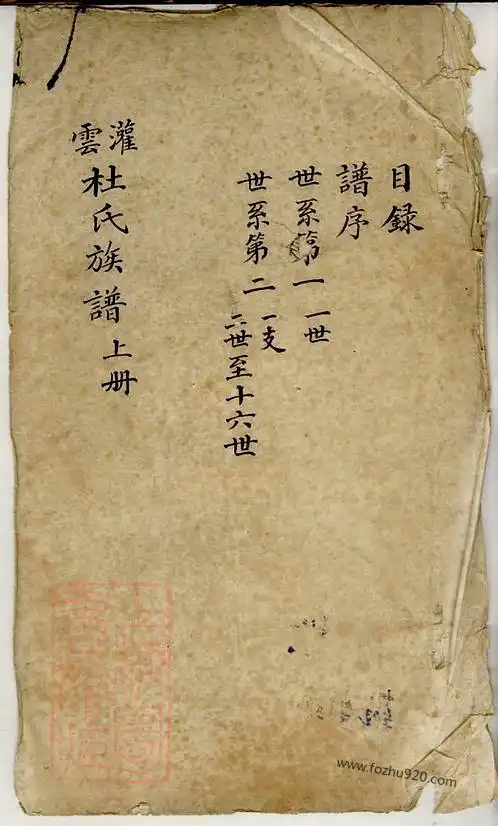 目録
譜序
世系第一 一世
世系第二 一支
二世至十六世
灌雲杜氏族譜 上册
www.fozhu920.com